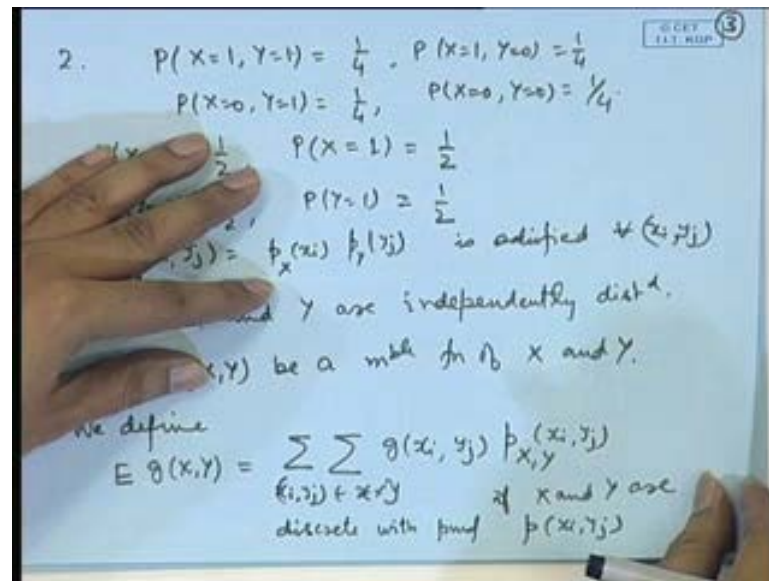 ③
I.I.T. KGP
2. P(X=1, Y=1) = 1/4, P(X=1, Y=0) = 1/4
P(X=0, Y=1) = 1/4, P(X=0, Y=0) = 1/4.
1/2, P(X=1) = 1/2
P(Y=1) = 1/2
yj) = p_X(xi) p_Y(yj) is satisfied ∀ (xi, yj)
and Y are independently distd.
X,Y) be a mble fn of X and Y.
We define
E g(X,Y) = Σ Σ g(xi, yj) p_X,Y(xi, yj)
(xi,yj) ∈ X×Y if X and Y are
discrete with pmf p(xi, yj)